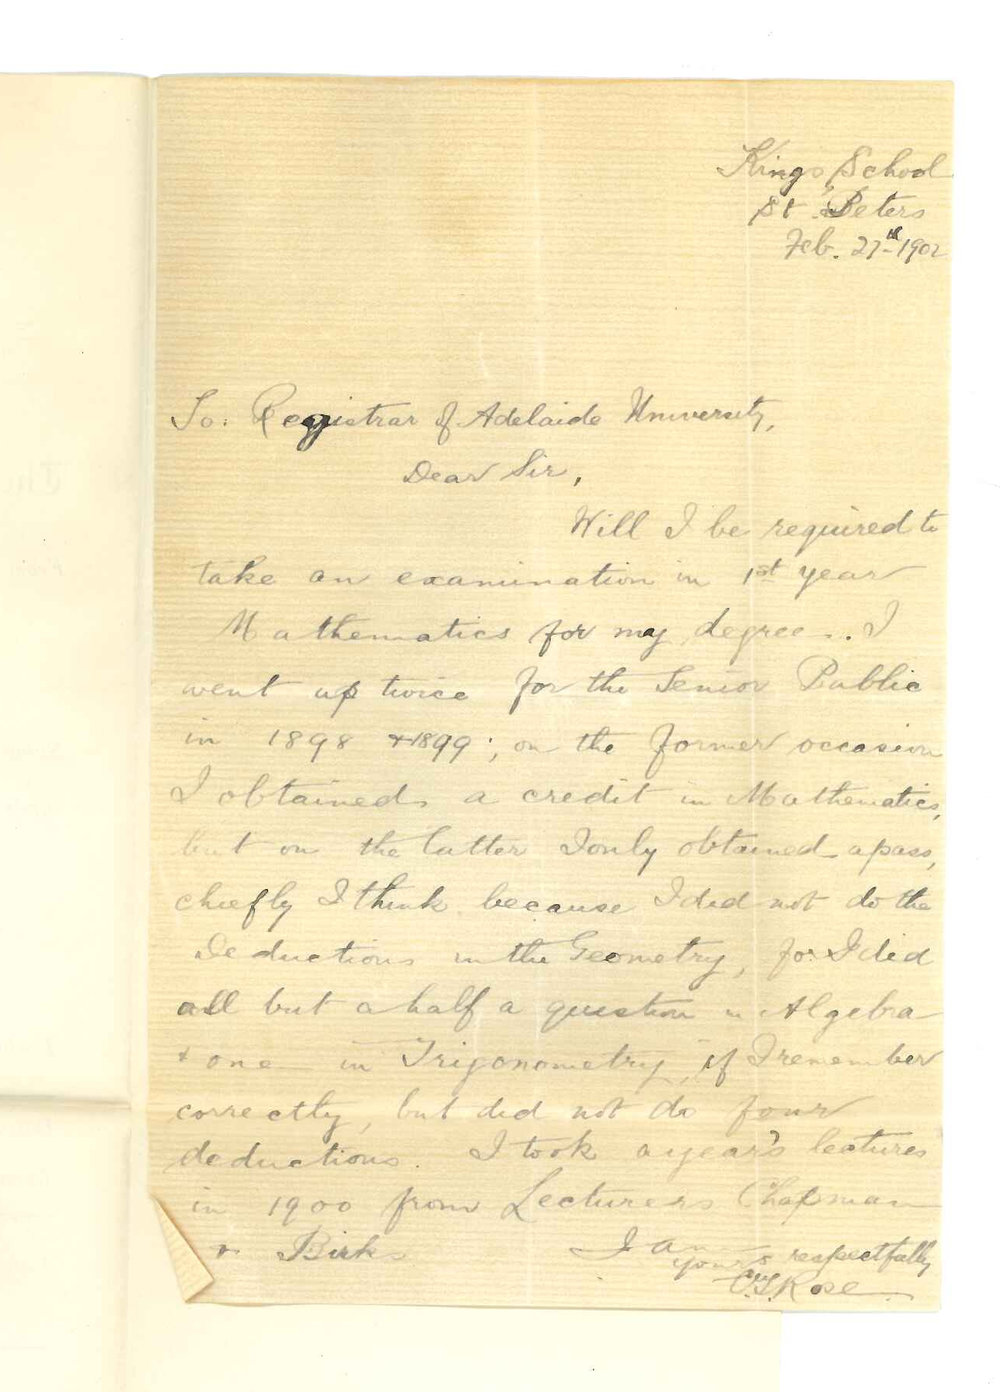 King's School
St. Peters
Feb. 27th 1902
To: Registrar of Adelaide University,
Dear Sir,
Will I be required to
take an examination in 1st year
Mathematics for my degree. I
went up twice for the Senior Public
in 1898 & 1899; on the former occasion
I obtained a credit in Mathematics,
but on the latter I only obtained a pass,
chiefly I think because I did not do the
Deductions in the Geometry, for I did
all but a half a question in Algebra
& one in Trigonometry, if I remember
correctly, but did not do four
deductions. I took a year's lectures
in 1900 from Lecturers Chapman
& Birks
I am
yours respectfully
Rose